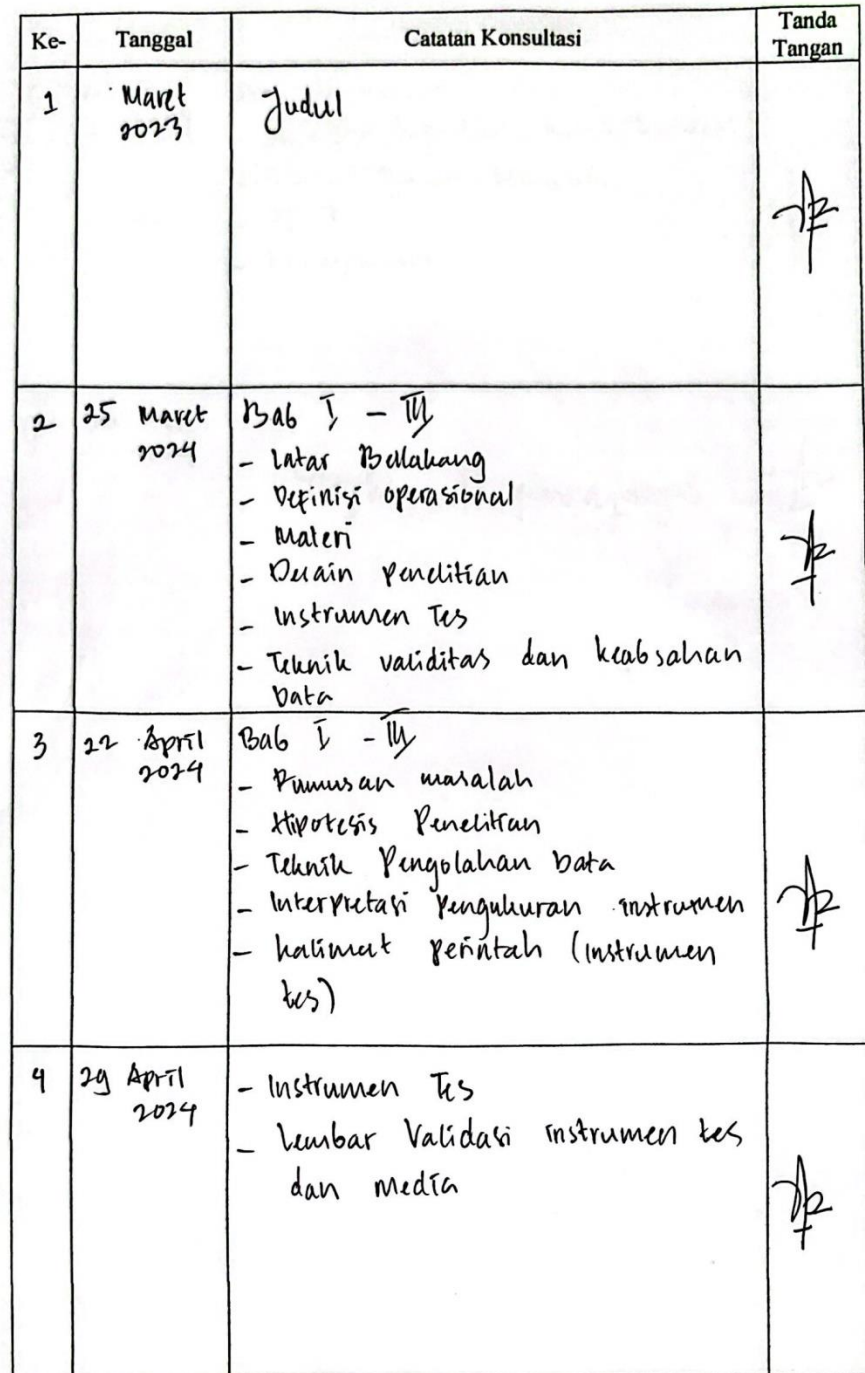 Ke- Tanggal Catatan Konsultasi Tanda Tangan
1 Maret 2023 Judul
2 25 Maret 2024 Bab I - III
- Latar Belakang
- Definisi operasional
- Materi
- Desain penelitian
- Instrumen Tes
- Teknik validitas dan keabsahan
Data
3 22 April 2024 Bab I - III
- Rumusan masalah
- Hipotesis Penelitian
- Teknik Pengolahan Data
- Interpretasi Pengukuran instrumen
- kalimat perintah (instrumen
tes)
4 29 April 2024 - Instrumen Tes
- Lembar Validasi instrumen tes
dan media